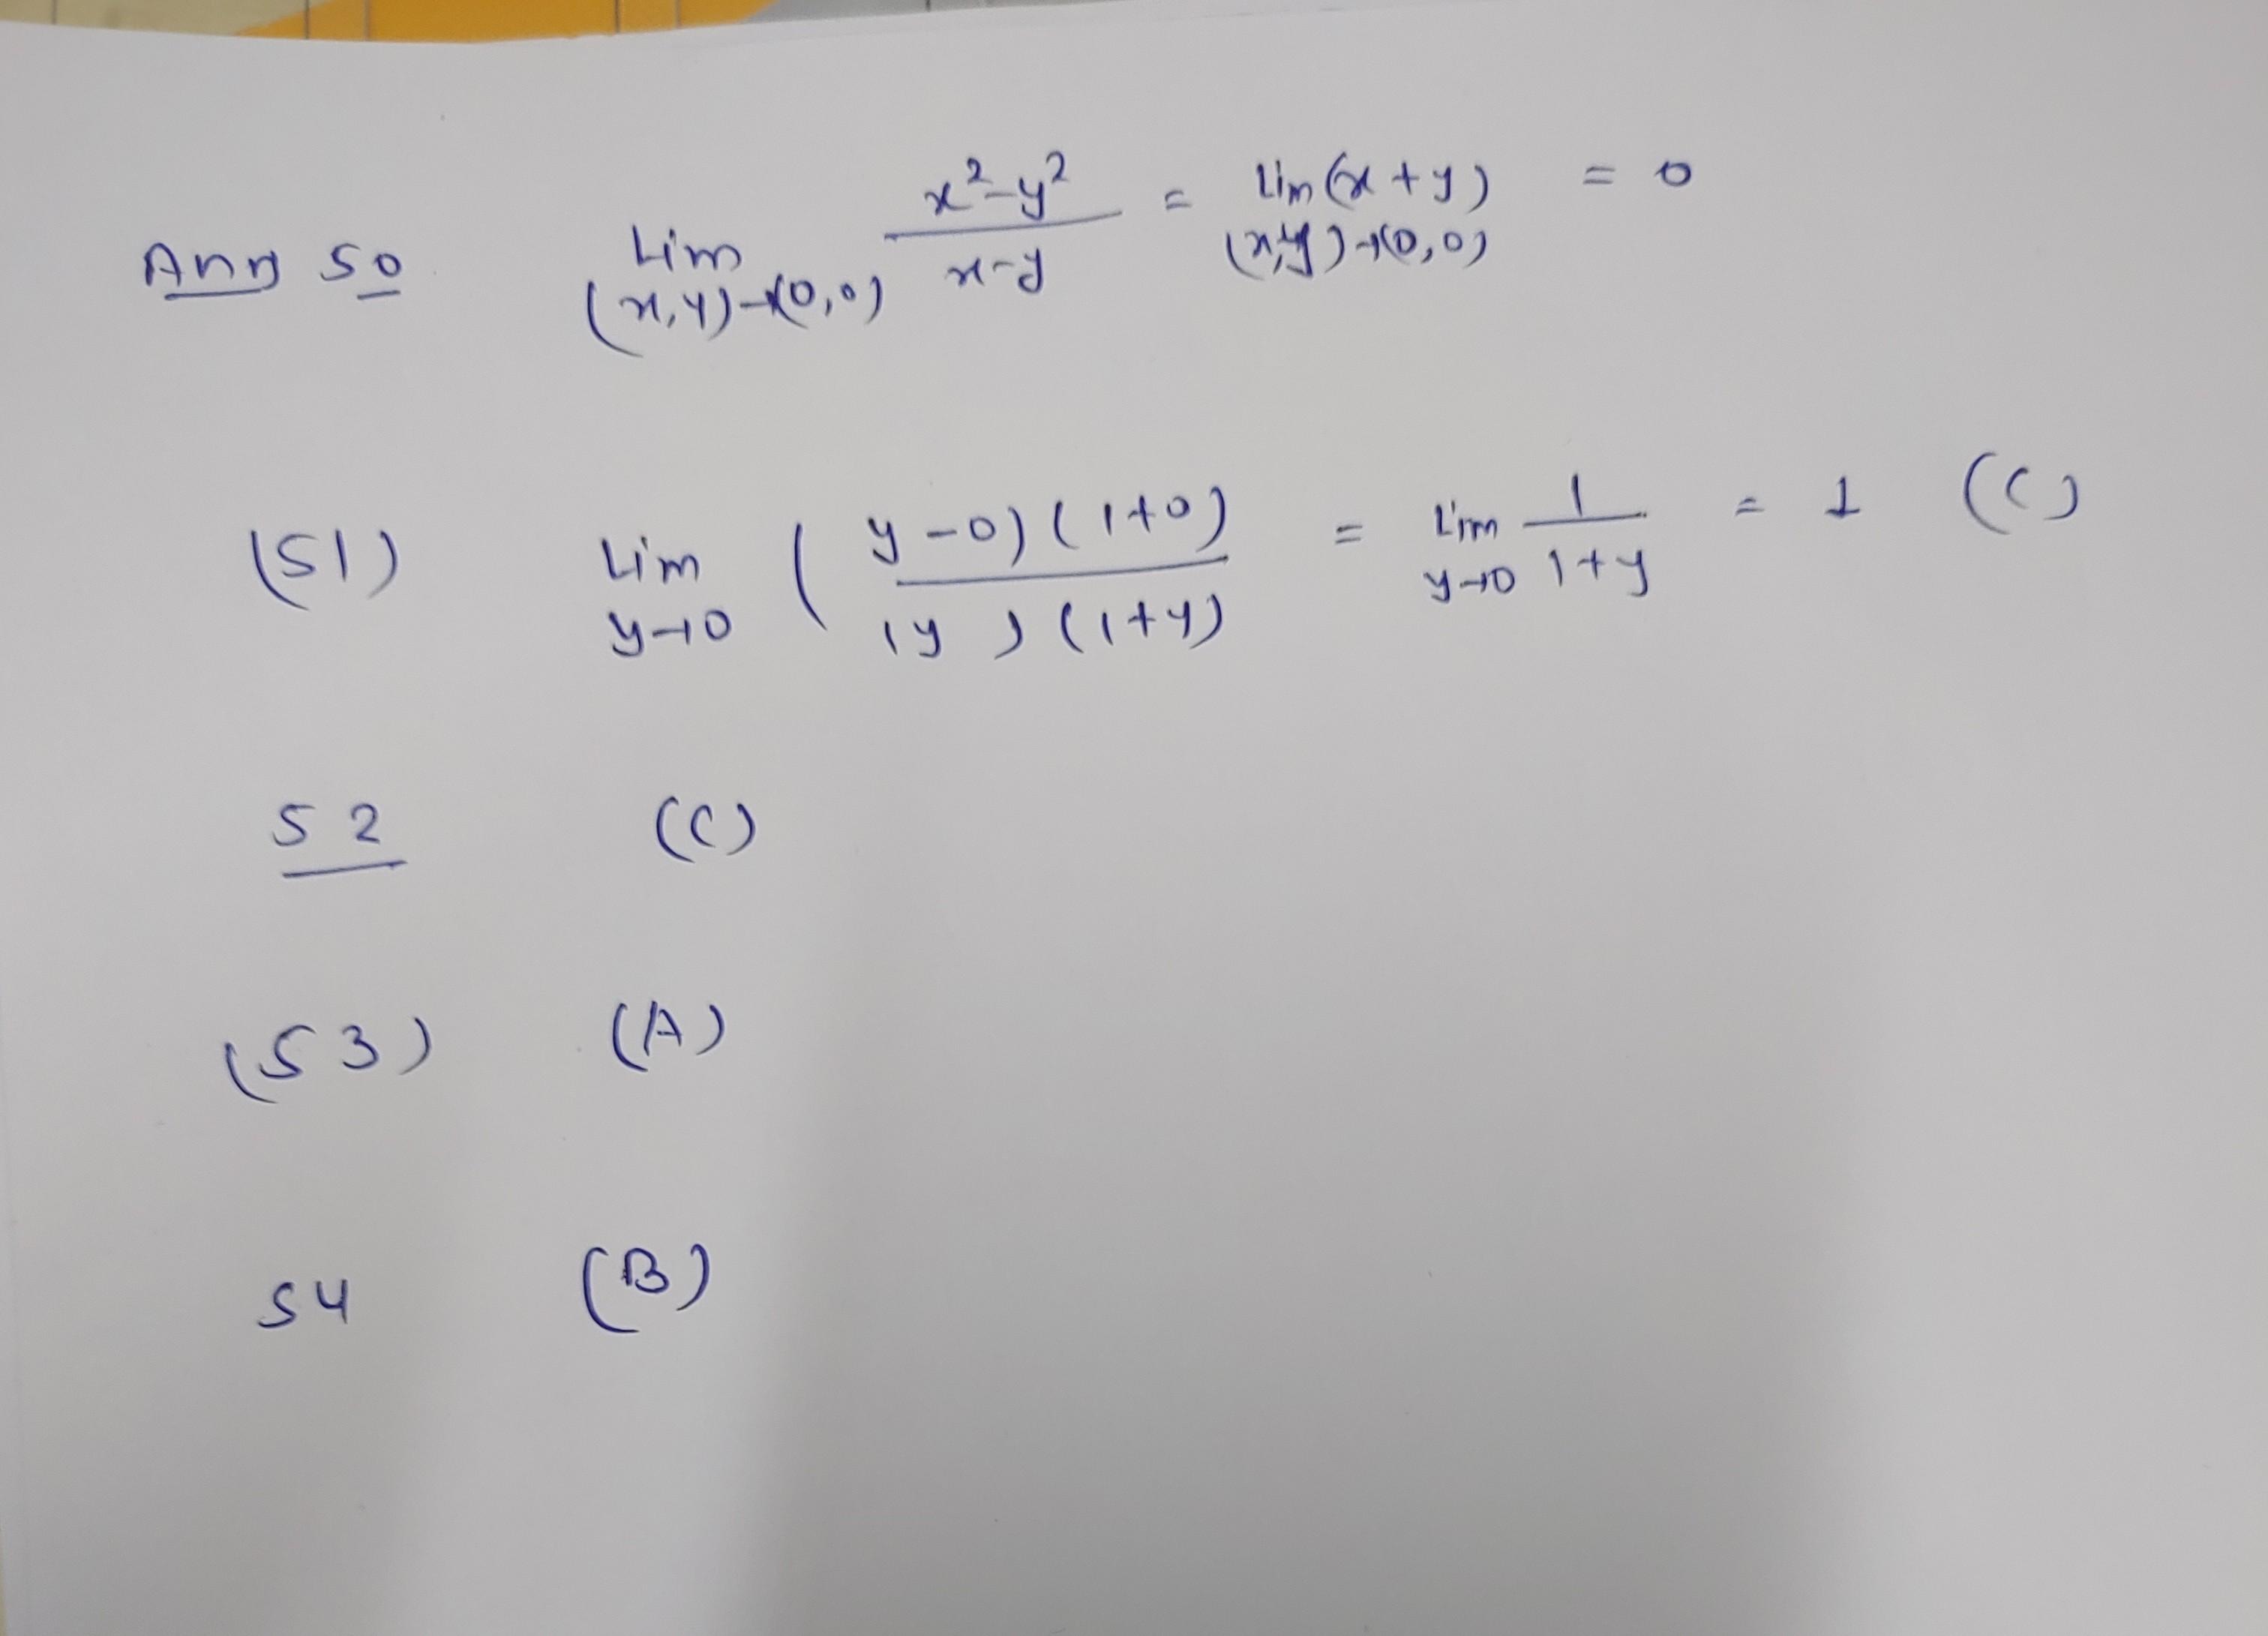 Ans 50 Lim (x,y)→(0,0) x²-y² / x-y = Lim (x+y) (x,y)→(0,0) = 0
(51) Lim y→0 ( y-0)(1+0) / (y)(1+y) = Lim y→0 1 / 1+y = 1 (C)
52 (C)
(53) (A)
54 (B)